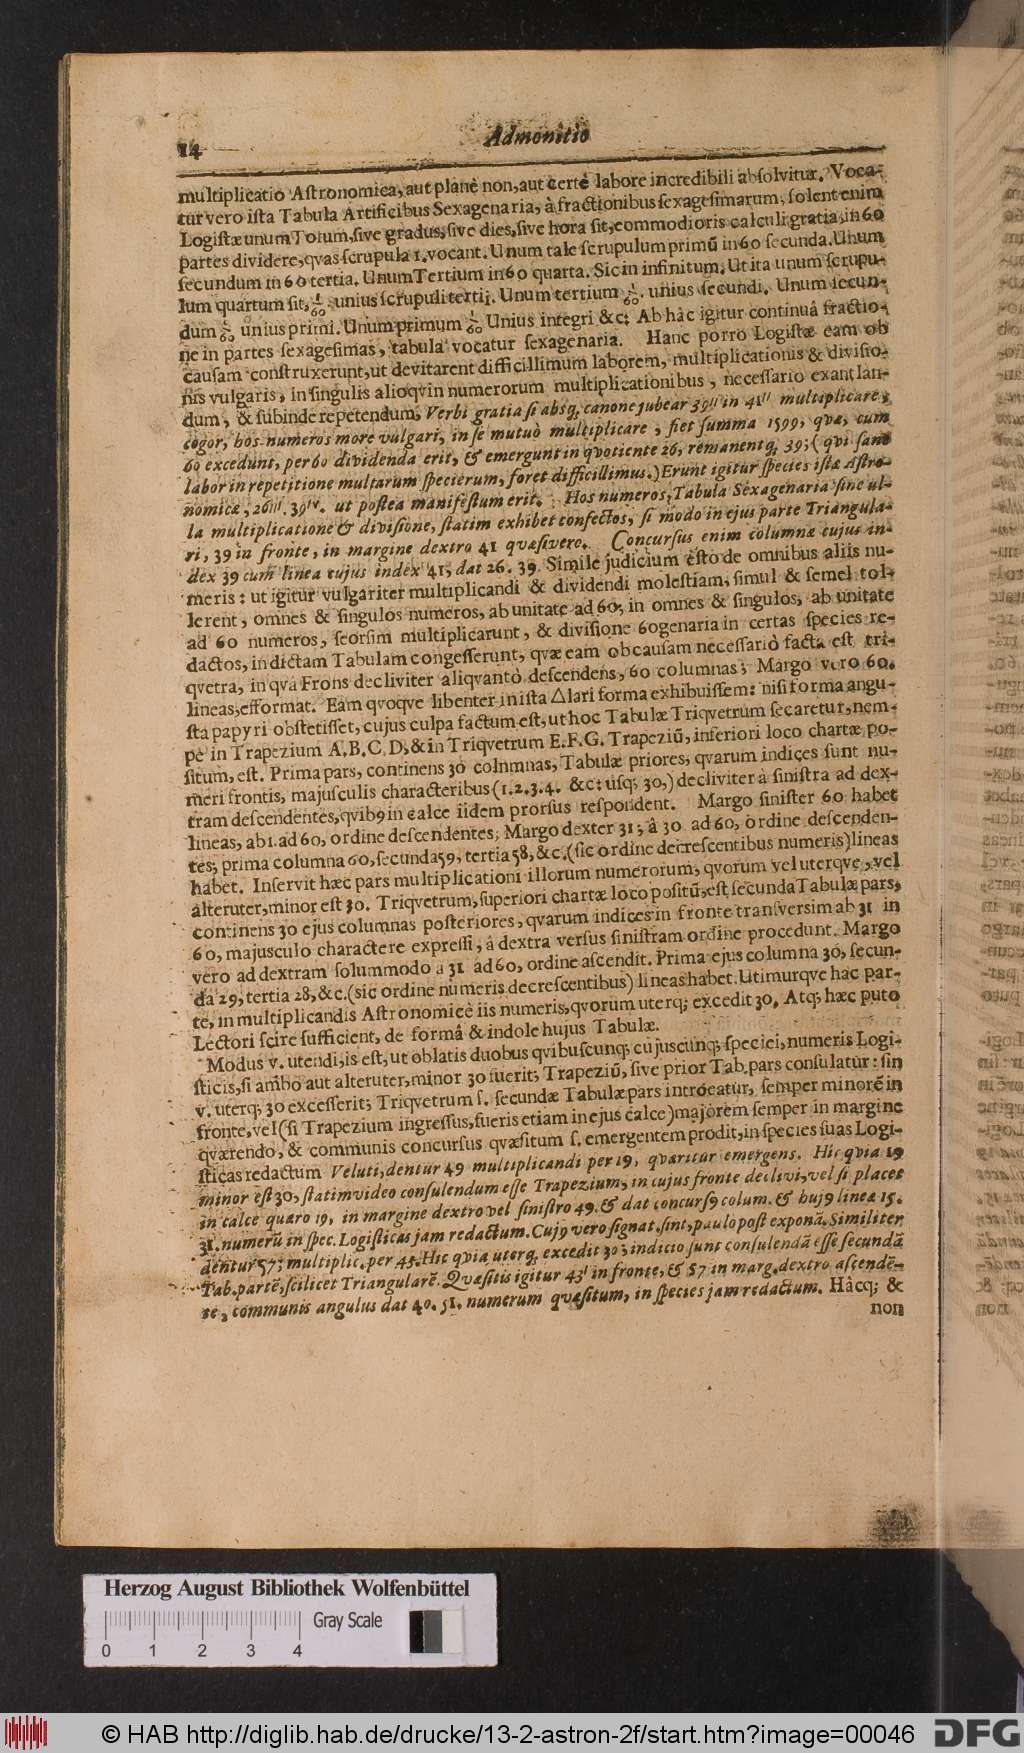 14
Admonitio
multiplicatio Aſtronomica, aut planè non, aut certè labore incredibili abſolvitur. Voca-
tur vero iſta Tabula Artificibus Sexagenaria, à fractionibus ſexageſimarum; ſolent enim
Logiſtæ unum Totum, ſive gradus, ſive dies, ſive hora ſit, commodioris calculi gratia, in 60
partes dividere, qvas ſcrupula 1. vocant. Unum tale ſcrupulum primũ in 60 ſecunda. Unum
ſecundum in 60 tertia. Unum Tertium in 60 quarta. Sic in infinitum. Ut ita unum ſcrupu-
lum quartum ſit, 1/60. unius ſcrupuli tertii. Unum tertium 1/60. unius ſecundi. Unum ſecun-
dum 1/60 unius primi. Unum primum 1/60 Unius integri &c: Ab hâc igitur continuâ fractio-
ne in partes ſexageſimas, tabula vocatur ſexagenaria. Hanc porrò Logiſtæ eam ob
cauſam conſtruxerunt, ut devitarent difficillimum laborem, multiplicationis & diviſio-
nis vulgaris, in ſingulis alioqvin numerorum multiplicationibus, neceſſario exantlan-
dum, & ſubinde repetendum. Verbi gratia ſi absq; canone jubear 39'' in 41'' multiplicare;
cogor, hos numeros more vulgari, in ſe mutuò multiplicare, fiet ſumma 1599, qvæ, cum
60 excedunt, per 60 dividenda erit, & emergunt in qvotiente 26, remanentq; 39; (qvi ſanè
labor in repetitione multarum ſpecierum, foret difficillimus.) Erunt igitur ſpecies iſtæ Aſtro-
nomicæ, 26'''. 39ıv. ut poſtea manifeſtum erit. Hos numeros, Tabula Sexagenaria ſine ul-
la multiplicatione & diviſione, ſtatim exhibet confectos, ſi modo in ejus parte Triangula-
ri, 39 in fronte, in margine dextro 41 quæſivero. Concurſus enim columnæ cujus in-
dex 39 cum linea cujus index 41, dat 26. 39. Simile judicium eſto de omnibus aliis nu-
meris: ut igitur vulgariter multiplicandi & dividendi moleſtiam, ſimul & ſemel tol-
lerent, omnes & ſingulos numeros, ab unitate ad 60, in omnes & ſingulos, ab unitate
ad 60 numeros, ſeorſim multiplicarunt, & diviſione 60genaria in certas ſpecies re-
dactos, in dictam Tabulam congeſſerunt, qvæ eam ob cauſam neceſſariò facta eſt tri-
qvetra, in qvâ Frons decliviter aliqvantò deſcendens, 60 columnas; Margo vero 60.
lineas, efformat. Eam qvoqve libenter in iſta △lari forma exhibuiſſem: niſi forma angu-
ſta papyri obſtetiſſet, cujus culpa factum eſt, ut hoc Tabulæ Triqvetrum ſecaretur, nem-
pè in Trapezium A. B. C. D, & in Triqvetrum E. F. G. Trapeziũ, inferiori loco chartæ po-
ſitum, eſt. Prima pars, continens 30 columnas, Tabulæ priores, qvarum indices ſunt nu-
meri frontis, majuſculis characteribus (1. 2. 3. 4. &c: uſq; 30,) decliviter à ſiniſtra ad dex-
tram deſcendentes, quib9 in calce iidem prorſus reſpondent. Margo ſiniſter 60 habet
lineas, ab 1. ad 60, ordine deſcendentes; Margo dexter 31; â 30 ad 60, ordine deſcenden-
tes; prima columna 60, ſecunda 59, tertia 58, &c. (ſic ordine decreſcentibus numeris) lineas
habet. Inſervit hæc pars multiplicationi illorum numerorum, qvorum vel uterqve, vel
alteruter, minor eſt 30. Triqvetrum, ſuperiori chartæ loco poſitũ, eſt ſecunda Tabulæ pars,
continens 30 ejus columnas poſteriores, qvarum indices in fronte tranſverſim ab 31 in
60, majuſculo charactere expreſſi, â dextra verſus ſiniſtram ordine procedunt. Margo
vero ad dextram ſolummodo a 31 ad 60, ordine aſcendit. Prima ejus columna 30, ſecun-
da 29, tertia 28, &c. (ſic ordine numeris decreſcentibus) lineas habet. Utimurqve hâc par-
te, in multiplicandis Aſtronomicè iis numeris, qvorum uterq; excedit 30. Atq; hæc puto
Lectori ſcire ſufficient, de formâ & indole hujus Tabulæ.
Modus v. utendi, is eſt, ut oblatis duobus qvibuſcunq; cujuscunq; ſpeciei, numeris Logi-
ſticis, ſi ambo aut alteruter, minor 30 fuerit; Trapeziũ, ſive prior Tab. pars conſulatur: ſin
v. uterq; 30 exceſſerit; Triqvetrum ſ. ſecundæ Tabulæ pars introeatur, ſemper minorẽ in
fronte, vel (ſi Trapezium ingreſſus, fueris etiam in ejus calce) majorem ſemper in margine
qværendo, & communis concurſus qvæſitum ſ. emergentem prodit, in ſpecies ſuas Logi-
ſticas redactum Veluti, dentur 49 multiplicandi per 19, qværitur emergens. Hic qvia 19
minor eſt 30, ſtatim video conſulendum eſſe Trapezium, in cujus fronte declivi, vel ſi placet
in calce quæro 19, in margine dextro vel ſiniſtro 49. & dat concurſ9 colum. & huj9 lineæ 15.
31. numerũ in ſpec. Logiſticas jam redactum. Cuj9 vero ſignat. ſint, paulo poſt exponã. Similiter
dentur 57; multiplic. per 43. Hic qvia uterq; excedit 30; indicio ſunt conſulendã eſſe ſecundã
Tab. partẽ, ſcilicet Triangularẽ. Qvæſitis igitur 43' in fronte, & 57 in marg. dextro aſcendẽ-
te, communis angulus dat 40. 51. numerum qvæſitum, in ſpecies jam redactum. Hâcq; &
non
Herzog August Bibliothek Wolfenbüttel
Gray Scale
0 1 2 3 4
© HAB http://diglib.hab.de/drucke/13-2-astron-2f/start.htm?image=00046
DFG